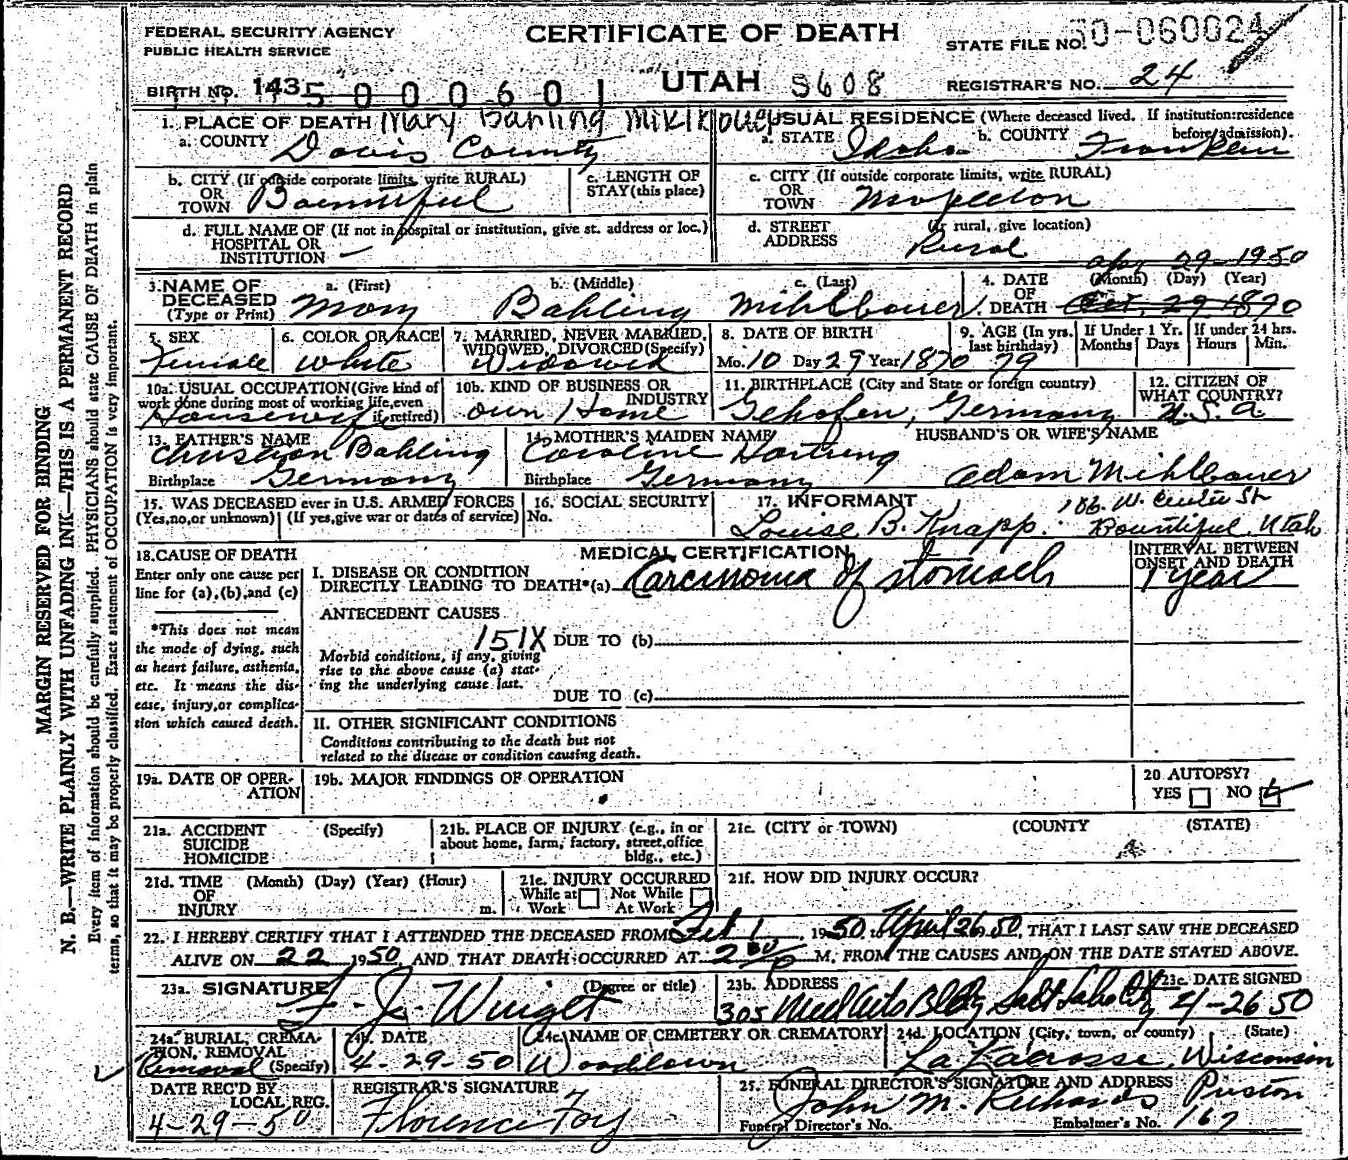 FEDERAL SECURITY AGENCY
PUBLIC HEALTH SERVICE
CERTIFICATE OF DEATH
STATE FILE NO. 50-060024
BIRTH NO. 143 5 0 0 0 6 0 1
UTAH 5608
REGISTRAR'S NO. 24
1. PLACE OF DEATH Mary Bahling
a. COUNTY Davis County
USUAL RESIDENCE (Where deceased lived. If institution: residence before admission).
a. STATE Idaho b. COUNTY Franklin
b. CITY (If outside corporate limits, write RURAL) OR TOWN Bountiful
c. LENGTH OF STAY (this place)
c. CITY (If outside corporate limits, write RURAL) OR TOWN Mapleton
d. FULL NAME OF (If not in hospital or institution, give st. address or loc.) HOSPITAL OR INSTITUTION —
d. STREET ADDRESS (if rural, give location) Rural
3. NAME OF DECEASED (Type or Print)
a. (First) Mary b. (Middle) Bahling c. (Last) Mihlbauer
4. DATE OF DEATH (Month) (Day) (Year) Apr 29-1950
Oct. 29 1870
5. SEX Female
6. COLOR OR RACE White
7. MARRIED, NEVER MARRIED, WIDOWED, DIVORCED (Specify) Widowed
8. DATE OF BIRTH Mo. 10 Day 29 Year 1870
9. AGE (In yrs. last birthday) 79
If Under 1 Yr. Months Days
If under 24 hrs. Hours Min.
10a. USUAL OCCUPATION (Give kind of work done during most of working life, even if retired) Housewife
10b. KIND OF BUSINESS OR INDUSTRY Own Home
11. BIRTHPLACE (City and State or foreign country) Gehofen, Germany
12. CITIZEN OF WHAT COUNTRY? U.S.A.
13. FATHER'S NAME Christian Bahling
Birthplace Germany
14. MOTHER'S MAIDEN NAME Caroline Hartung
Birthplace Germany
HUSBAND'S OR WIFE'S NAME
Adam Mihlbauer
15. WAS DECEASED ever in U.S. ARMED FORCES
(Yes, no, or unknown) (If yes, give war or dates of service)
16. SOCIAL SECURITY No.
17. INFORMANT
Louise B. Knapp W. Center St Bountiful, Utah
18. CAUSE OF DEATH
Enter only one cause per line for (a), (b), and (c)
*This does not mean the mode of dying, such as heart failure, asthenia, etc. It means the disease, injury, or complication which caused death.
MEDICAL CERTIFICATION
INTERVAL BETWEEN ONSET AND DEATH
I. DISEASE OR CONDITION DIRECTLY LEADING TO DEATH* (a) Carcinoma of stomach 1 year
ANTECEDENT CAUSES
151X DUE TO (b)
Morbid conditions, if any, giving rise to the above cause (a) stating the underlying cause last.
DUE TO (c)
II. OTHER SIGNIFICANT CONDITIONS
Conditions contributing to the death but not related to the disease or condition causing death.
19a. DATE OF OPERATION
19b. MAJOR FINDINGS OF OPERATION
20 AUTOPSY? YES NO
21a. ACCIDENT SUICIDE HOMICIDE (Specify)
21b. PLACE OF INJURY (e.g., in or about home, farm, factory, street, office bldg., etc.)
21c. (CITY or TOWN) (COUNTY (STATE)
21d. TIME OF INJURY (Month) (Day) (Year) (Hour) m.
21e. INJURY OCCURRED While at Work Not While At Work
21f. HOW DID INJURY OCCUR?
22. I HEREBY CERTIFY THAT I ATTENDED THE DECEASED FROM Feb 1 1950 to April 26 50, THAT I LAST SAW THE DECEASED
ALIVE ON 22 1950 AND THAT DEATH OCCURRED AT 2 P M. FROM THE CAUSES AND ON THE DATE STATED ABOVE.
23a. SIGNATURE (Degree or title)
23b. ADDRESS 305 Med Arts Bldg Salt Lake City
23c. DATE SIGNED 4-26 50
24a. BURIAL, CREMATION, REMOVAL (Specify) Removal
24b. DATE 4-29-50
24c. NAME OF CEMETERY OR CREMATORY Woodlawn
24d. LOCATION (City, town, or county) (State) La Lacrosse, Wisconsin
DATE REC'D BY LOCAL REG. 4-29-50
REGISTRAR'S SIGNATURE Florence Foy
25. FUNERAL DIRECTOR'S SIGNATURE AND ADDRESS
John M. Richards Preston
Funeral Director's No. Embalmer's No. 167
MARGIN RESERVED FOR BINDING
N. B.—WRITE PLAINLY WITH UNFADING INK—THIS IS A PERMANENT RECORD
Every item of information should be carefully supplied. PHYSICIANS should state CAUSE OF DEATH in plain
terms, so that it may be properly classified. Exact statement of OCCUPATION is very important.